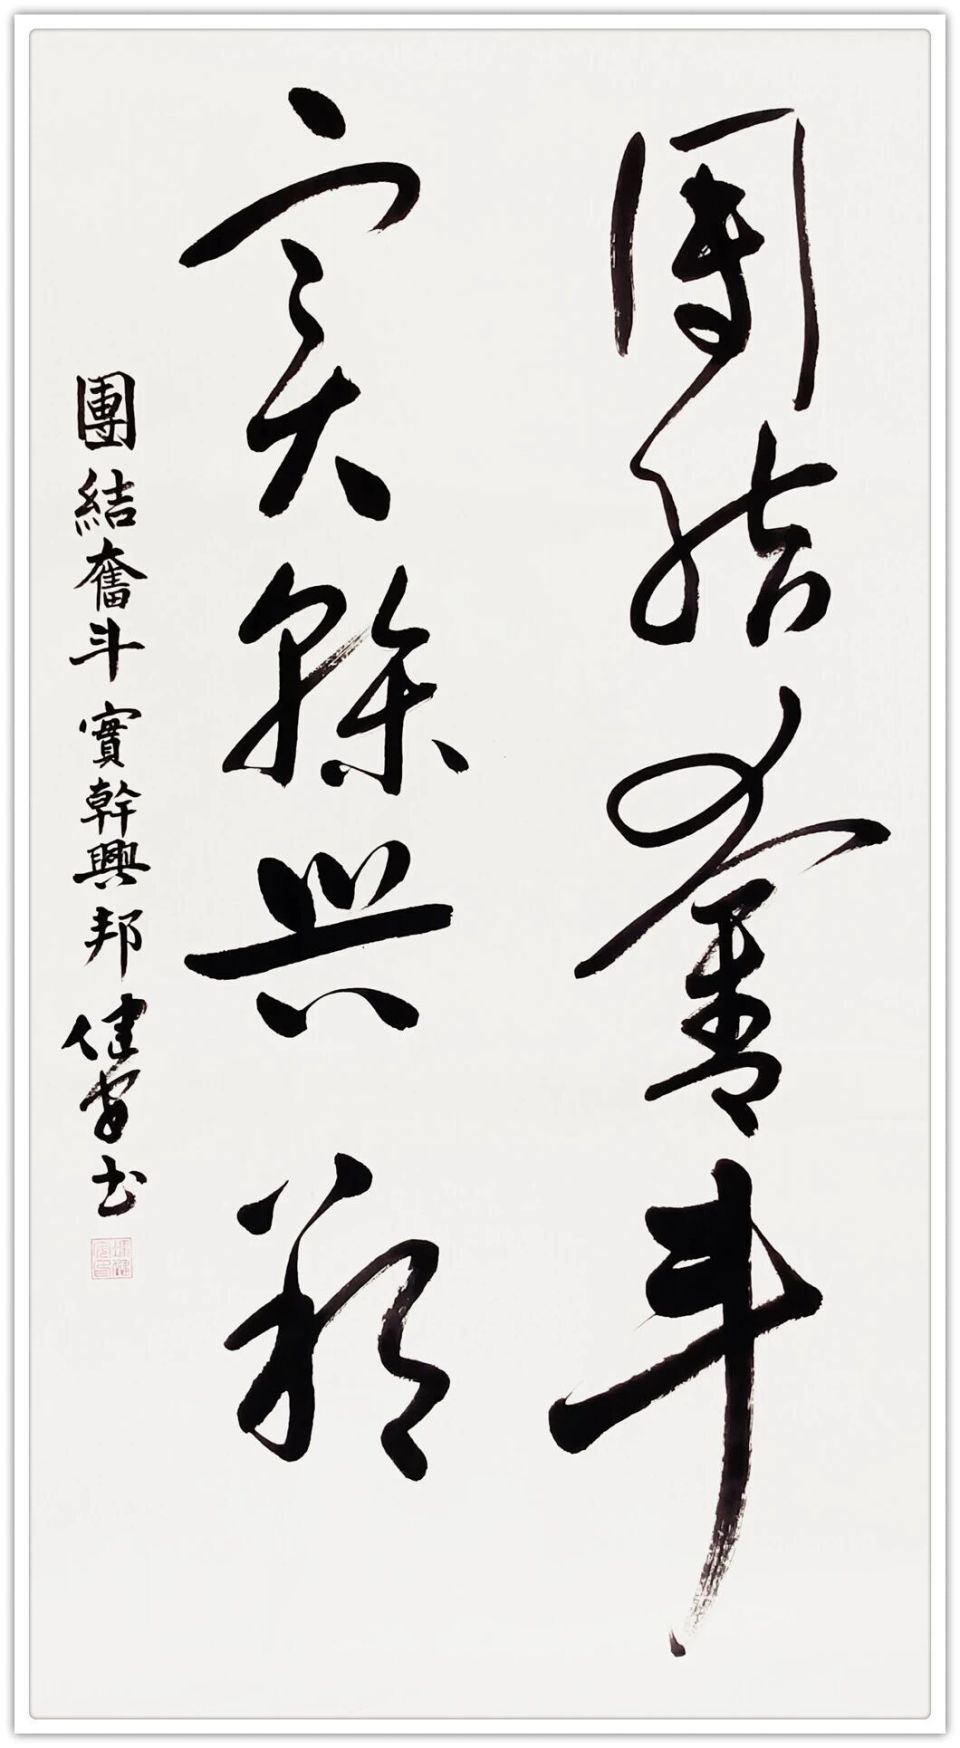 團結奮斗
实幹兴邦
團結奮斗實幹興邦健安书